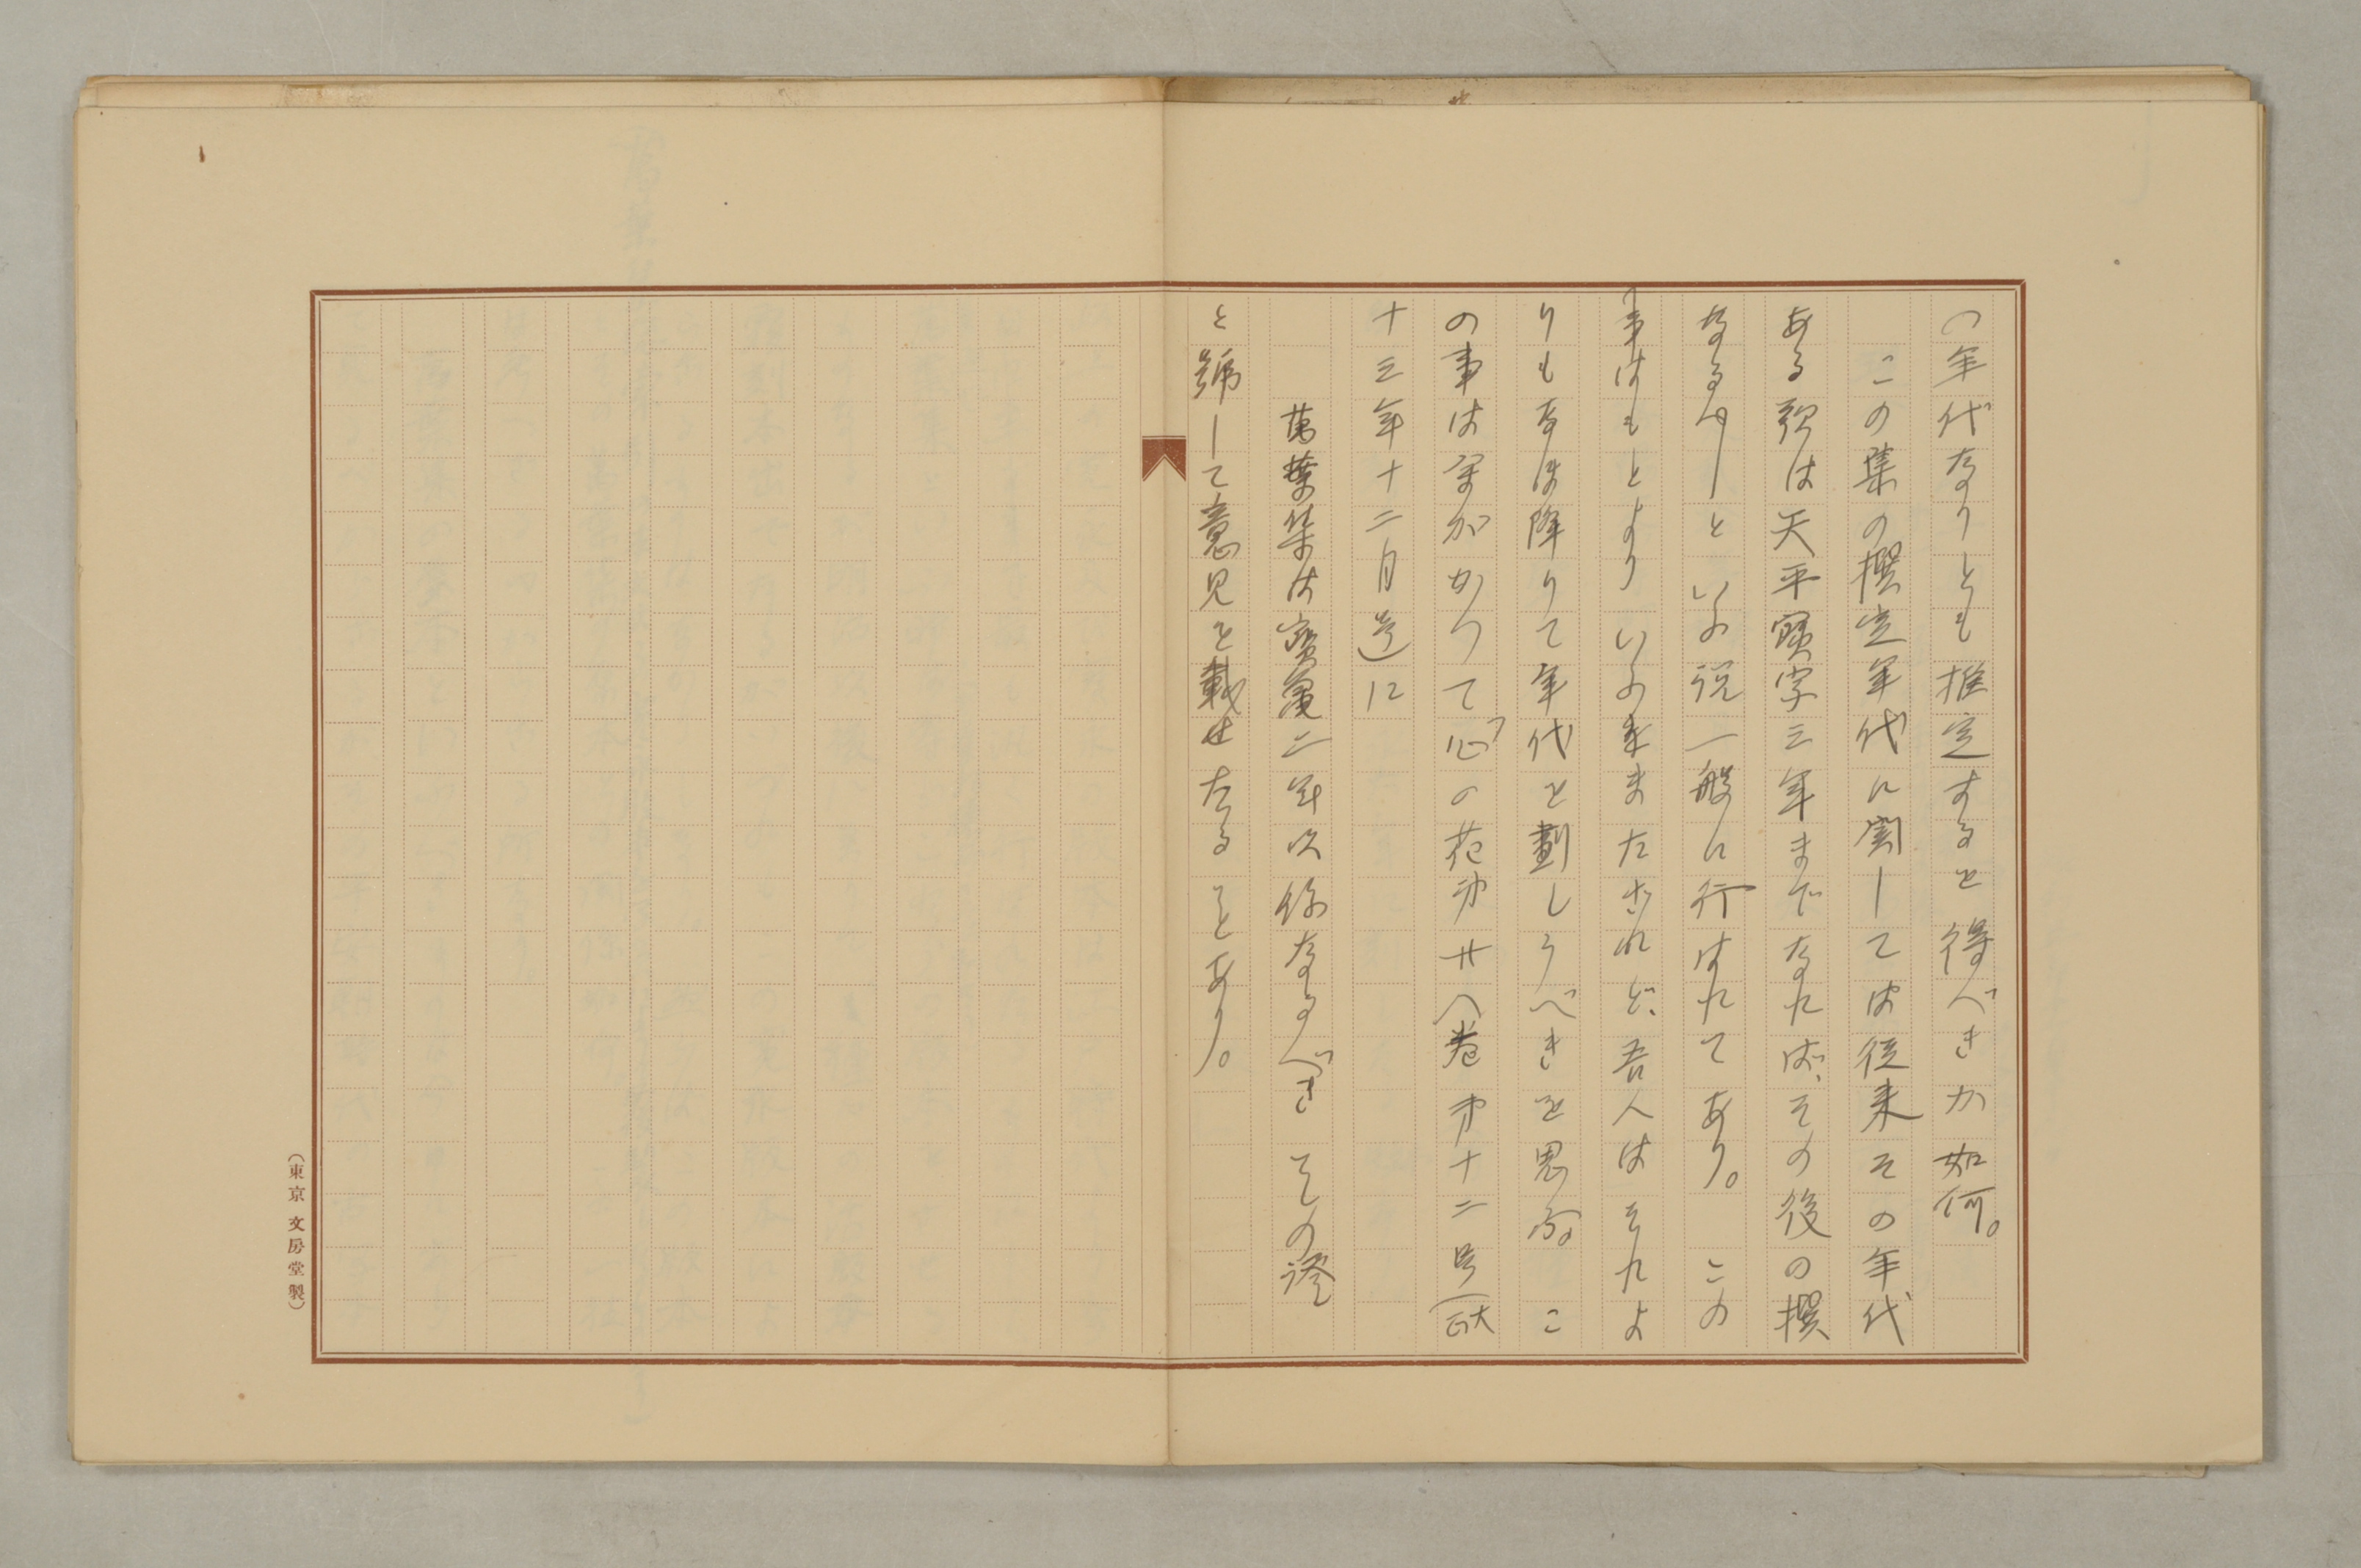 の年代なりとも推定するを得べきか如何。
この集の撰定年代に関しては従来その年代
ある歌は天平寳字三年までなれば、その後の撰
なるべしといふ説一般に行はれてあり。この
事はもとよりいふをまたざれど、吾人はそれよ
りもなほ降りて年代を劃しうべきを思ふ。こ
の事は余がかつて心の花第廿八巻第十二号(大正
十三年十二月号)に
萬葉集は寳亀二年以後なるべきその證
と號して意見を載せたることあり。
(東京 文房堂製)